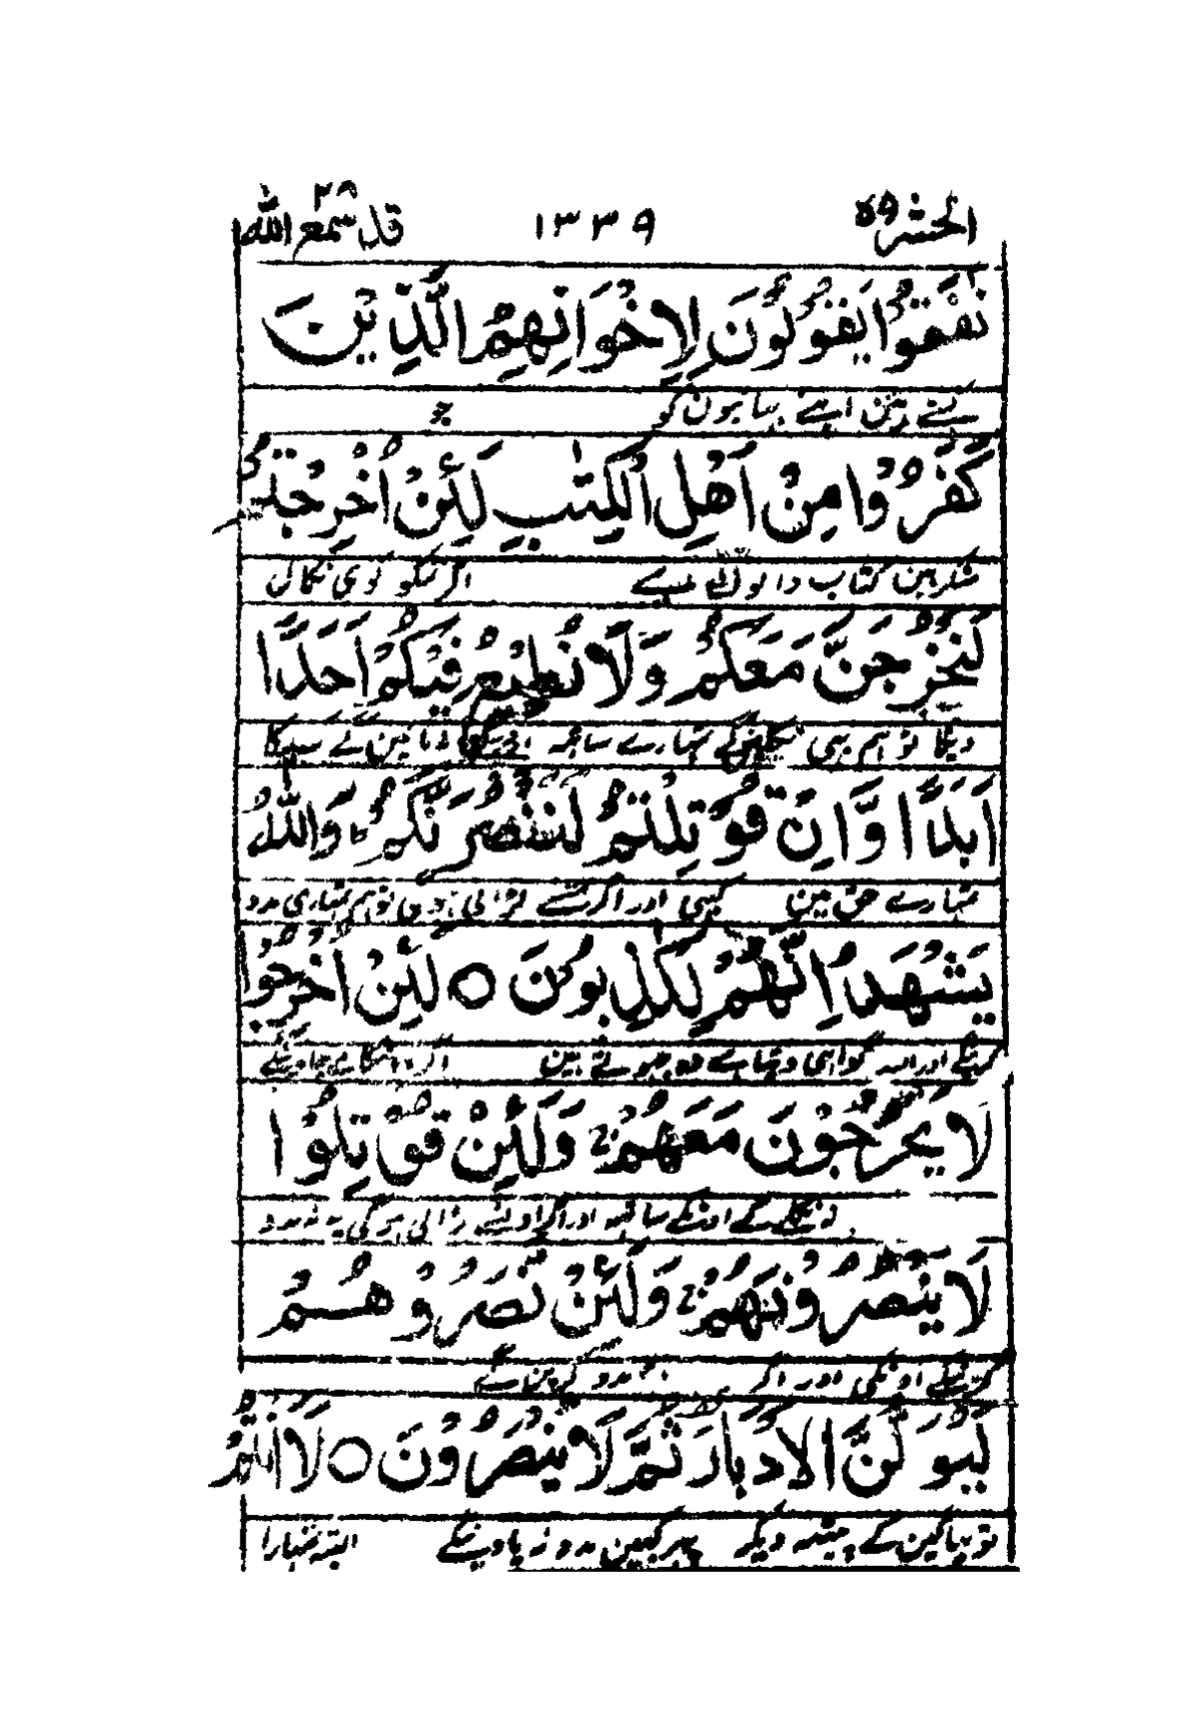 الحشر ٥٩ ١٣٣٩ قد سمع الله ٢٨
نَفَقُوْا يَقُوْلُوْنَ لِاِخْوَانِهِمُ الَّذِيْنَ
اپنے بہایون کو جو
كَفَرُوْا مِنْ اَهْلِ الْكِتٰبِ لَئِنْ اُخْرِجْتُمْ
منکر ہین کتاب والون مین سے اگر تمکو کوی نکال
لَنَخْرُجَنَّ مَعَكُمْ وَلَا نُطِيْعُ فِيْكُمْ اَحَدًا
دیگا تو ہم بہی نکلینگے تمہارے ساتہہ اور کہا نہ مانین گے کسیکا
اَبَدًا وَّاِنْ قُوْتِلْتُمْ لَنَنْصُرَنَّكُمْ وَاللّٰهُ
تمہارے حق مین کبہی اور اگر تمسے لڑائی ہووی تو ہم تمہاری مدد
يَشْهَدُ اِنَّهُمْ لَكٰذِبُوْنَ ○ لَئِنْ اُخْرِجُوْا
کرینگے اور اللہ گواہی دیتا ہے وہ جہوٹے ہین اگر وہ نکالے جاوینگے
لَا يَخْرُجُوْنَ مَعَهُمْ ۚ وَلَئِنْ قُوْتِلُوْا
نہ نکلینگے اونکے ساتہہ اور اگر اونسے لڑائی ہوگی یہ نہ مدد
لَا يَنْصُرُوْنَهُمْ ۚ وَلَئِنْ نَّصَرُوْهُمْ
کرینگے اونکی اور اگر مدد کرینگے
لَيُوَلُّنَّ الْاَدْبَارَ ثُمَّ لَا يُنْصَرُوْنَ ○ لَا اَنْتُمْ
تو بہاگین گے پیٹہہ دیکر پہر کہین مدد نہ پاوینگے البتہ تمہارا